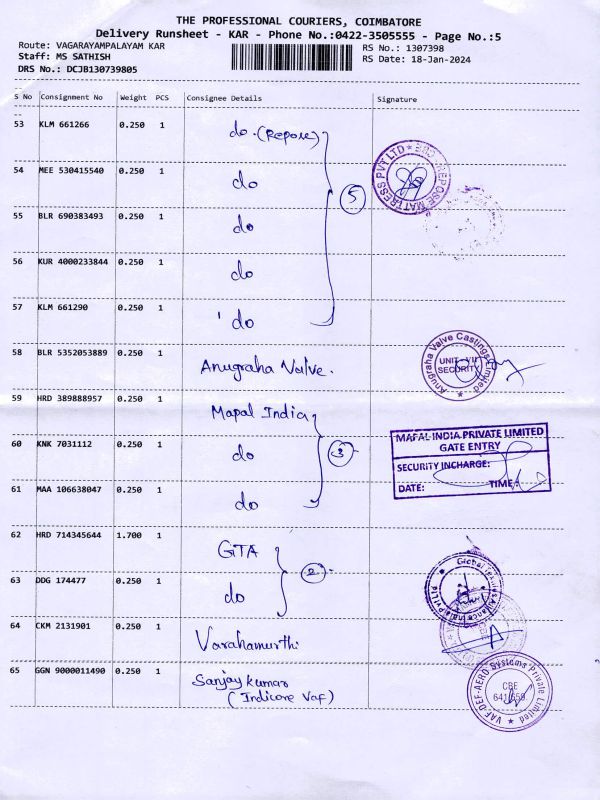 THE PROFESSIONAL COURIERS, COIMBATORE
Delivery Runsheet - KAR - Phone No.:0422-3505555 - Page No.:5
Route: VAGARAYAMPALAYAM KAR
RS No.: 1307398
Staff: MS SATHISH
RS Date: 18-Jan-2024
DRS No.: DCJB130739805
S No Consignment No Weight PCS Consignee Details Signature
53 KLM 661266 0.250 1 do. (Repose)
54 MEE 530415540 0.250 1 do
REPOSE MATTRESS PVT LTD ★ CBE
5
55 BLR 690383493 0.250 1 do
56 KUR 4000233844 0.250 1 do
57 KLM 661290 0.250 1 do
58 BLR 5352053889 0.250 1 Anugraha Valve.
Anugraha Valve Castings Limited
UNIT - VII
SECURITY
59 HRD 389888957 0.250 1 Mapal India
60 KNK 7031112 0.250 1 do 3
MAPAL INDIA PRIVATE LIMITED
GATE ENTRY
SECURITY INCHARGE:
DATE: TIME:
61 MAA 106638047 0.250 1 do
62 HRD 714345644 1.700 1 GTA
2
63 DDG 174477 0.250 1 do
64 CKM 2131901 0.250 1 Varahamurthi
65 GGN 9000011490 0.250 1 Sanjay kumar
(Indicore Vaf)
VAF-DEF-AERO Systems Private Limited
CBE
641 659